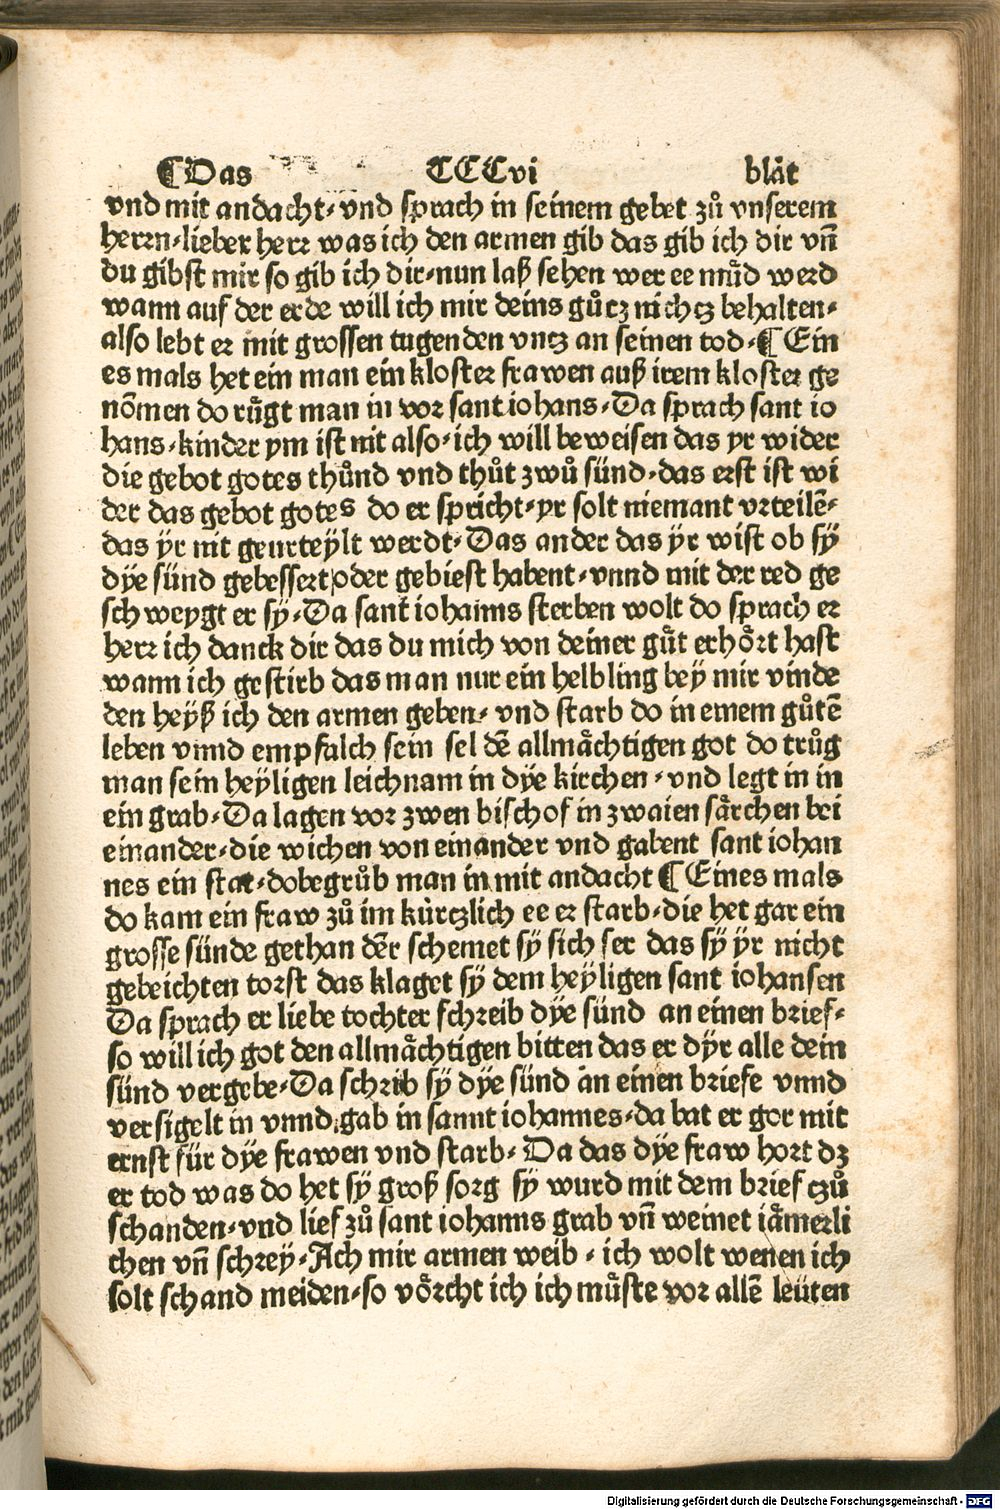 ¶Das CCCvi blåt
vnd mit andacht⸗vnd sprach in seinem gebet zů vnserem
herrn⸗lieber herr was ich den armen gib das gib ich dir vñ
du gibst mir so gib ich dir⸗nun laß sehen wer ee můd werd
wann auf der erde will ich mir deins gůtz nichtz behalten⸗
also lebt er mit grossen tugenden vntz an seinen tod⸗¶Ein
es mals het ein man ein kloster frawen auß irem kloster ge
nōmen do růgt man in vor sant iohans⸗Da sprach sant io
hans⸗kinder ym ist nit also⸗ich will beweisen das yr wider
die gebot gotes thůnd vnd thůt zwů sünd⸗das erst ist wi
der das gebot gotes do er spricht⸗yr solt niemant vrteilē⸗
das ÿr nit geurteÿlt werdt⸗Das ander das ÿr wist ob sÿ
dÿe sünd gebessert oder gebiest habent⸗vnnd mit der red ge
schweygt er sÿ⸗Da sant iohanns sterben wolt do sprach er
herr ich danck dir das du mich von deiner gůt erhört hast
wann ich gestirb das man nur ein helbling bey mir vinde
den heÿß ich den armen geben⸗ vnd starb do in einem gůtē
leben vnnd empfalch sein sel dē allmåchtigen got do trůg
man sein heÿligen leichnam in dÿe kirchen⸗vnd legt in in
ein grab⸗Da lagen vor zwen bischof in zwaien sårchen bei
einander⸗die wichen von einander vnd gabent sant iohan
nes ein stat⸗dobegrůb man in mit andacht ¶Eines mals
do kam ein fraw zů im kürtzlich ee er starb⸗die het gar ein
grosse sünde gethan der schemet sÿ sich ser das sÿ ÿr nicht
gebeichten torst das klaget sÿ dem heÿligen sant iohansen
Da sprach er liebe tochter schreib dÿe sünd an einen brief⸗
so will ich got den allmåchtigen bitten das er dÿr alle dein
sünd vergebe⸗Da schrib sÿ dÿe sünd an einen briefe vnnd
versigelt in vnnd gab in sannt iohannes⸗da bat er got mit
ernst für dÿe frawen vnd starb⸗ Da das dÿe fraw hort dz
er tod was do het sÿ groß sorg sÿ wurd mit dem brief tzů
schanden⸗vnd lief zů sant iohanns grab vñ weinet iåmerli
chen vñ schrey⸗Ach mir armen weib⸗ich wolt wenen ich
solt schand meiden⸗so vörcht ich ich můste vor allē leüten
Digitalisierung gefördert durch die Deutsche Forschungsgemeinschaft - DFG